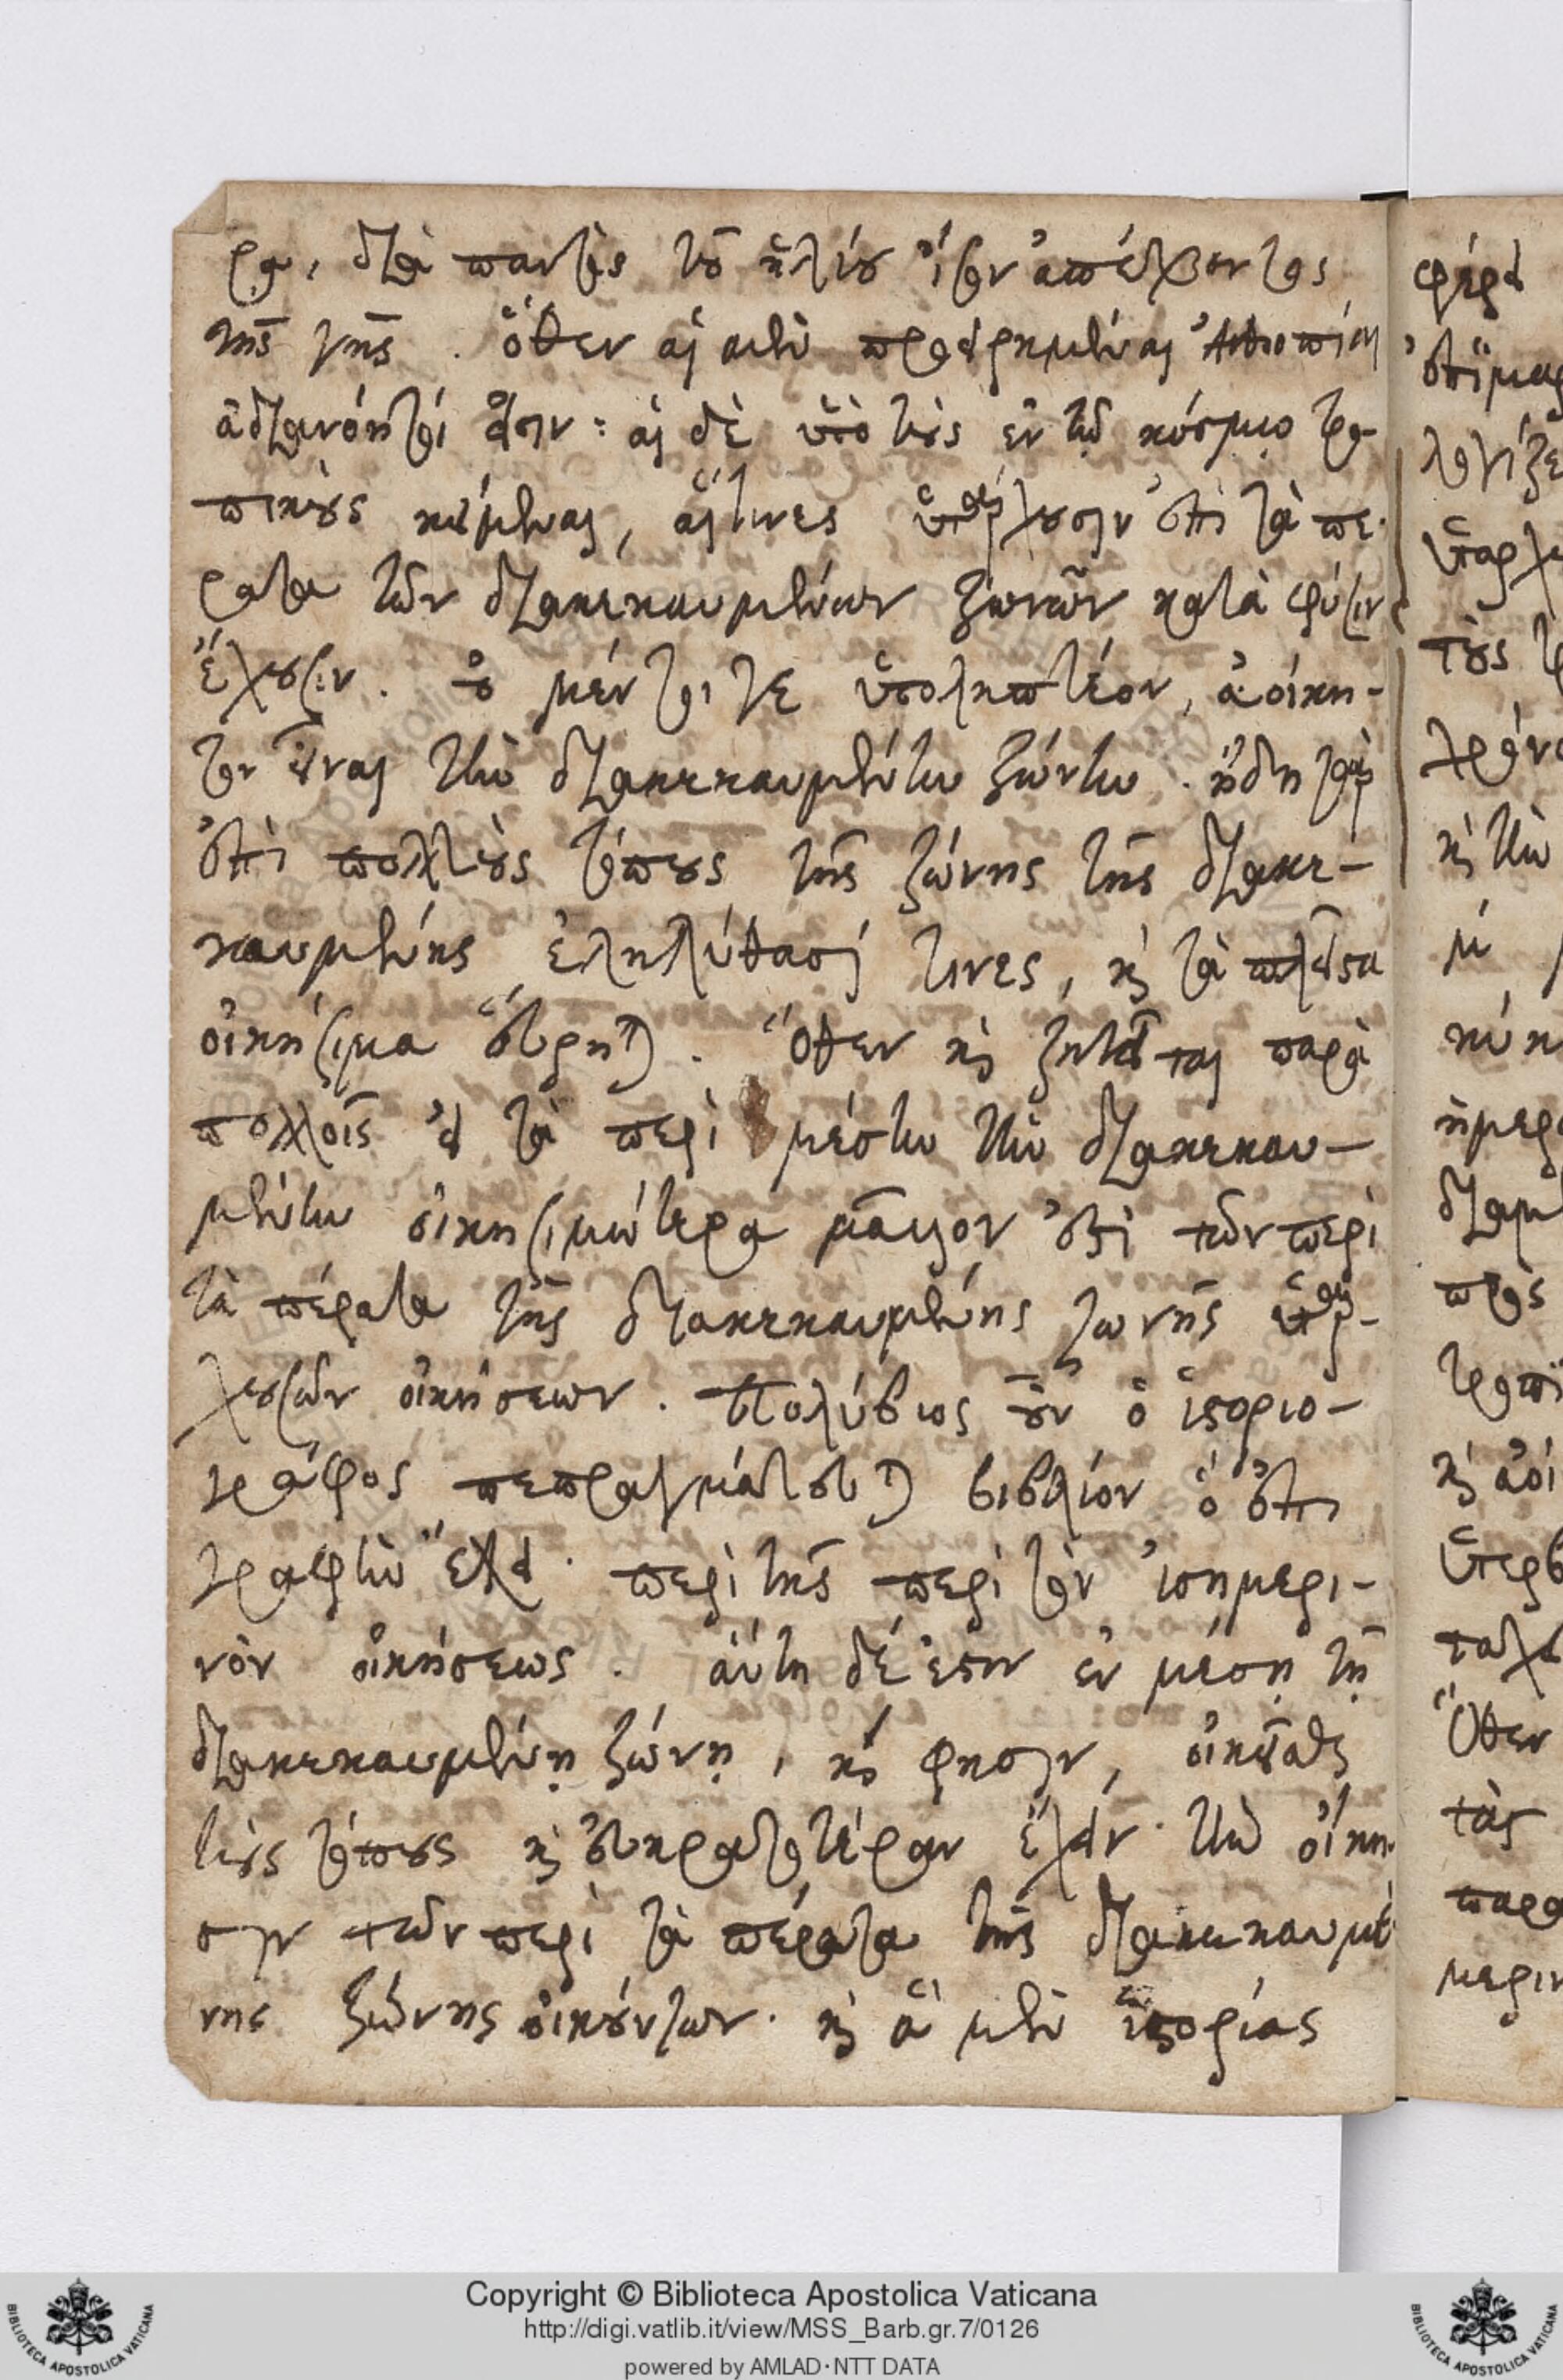 ρα, διὰ παντὸς τοῦ ἡλίου ἴσον ἀπέχοντος
τῆς γῆς. ὅθεν αἱ μὲν προειρημέναι Αἰθιοπίαι
ἀδιανόητοί εἰσιν: αἱ δὲ ὑπὸ τοὺς ἐν τῷ κόσμῳ τρο-
πικοὺς κείμεναι, αἵτινες ὑπάρχουσιν ἐπὶ τὰ πέ-
ρατα τῶν διακεκαυμένων ζωνῶν κατὰ φύσιν
ἔχουσιν. οὐ μέντοι γε ὑποληπτέον, ἀοίκη-
τον εἶναι τὴν διακεκαυμένην ζώνην. ἤδη γὰρ
ἐπὶ πολλοὺς τόπους τῆς ζώνης τῆς διακε-
καυμένης ἐληλύθασί τινες, καὶ τὰ πλεῖστα
οἰκήσιμα εὕρηται. Ὅθεν καὶ ζητεῖται παρὰ
πολλοῖς εἰ τὰ περὶ μέσην τὴν διακεκαυ-
μένην οἰκησιμώτερα μᾶλλον ἐστὶ τῶν περὶ
τὰ πέρατα τῆς διακεκαυμένης ζωνῆς ὑπαρ-
χουσῶν οἰκήσεων. Πολύβιος οὖν ὁ ἱστοριο-
γράφος πεπραγμάτευται βιβλίον ὃ ἐπι
γραφὴν ἔχει· περὶ τῆς περὶ τὸν ἰσημερι-
νὸν οἰκήσεως. αὕτη δέ ἐστιν ἐν μέσῃ τῇ
διακεκαυμένῃ ζώνῃ, καί φησιν, οἰκεῖσθαι
τοὺς τόπους καὶ εὐκρατοτέραν ἔχειν· τὴν οἴκη-
σιν τῶν περὶ τὰ πέρατα τῆς διακεκαυμέ
νης ζώνης οἰκούντων. καὶ ἃ μὲν ἱστορίας
Copyright © Biblioteca Apostolica Vaticana
http://digi.vatlib.it/view/MSS_Barb.gr.7/0126
powered by AMLAD·NTT DATA